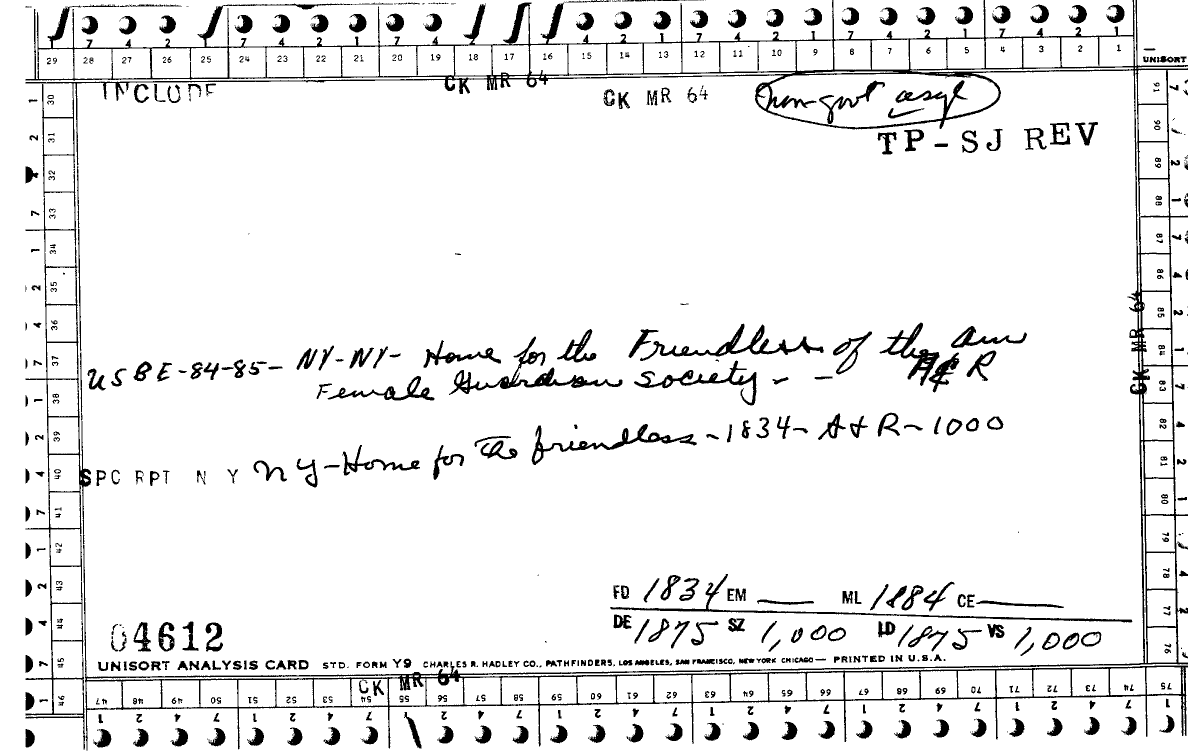 7 4 2 7 4 2 1 7 4 2 1 7 4 2 1 7 4 2 1 7 4 2 1
29 28 27 26 25 24 23 22 21 20 19 18 17 16 15 14 13 12 11 10 9 8 7 6 5 4 3 2 1
UNISORT
INCLUDE CK MR 64 CK MR 64 non-govt asyl
TP-SJ REV
CK MR 64
USBE-84-85- NY-NY- Home for the Friendless of the Am
Female Guardian Society - - R
SPC RPT N Y NY-Home for the friendless-1834- A & R-1000
FD 1834 EM ML 1884 CE
DE 1875 SZ 1,000 LD 1875 VS 1,000
04612
UNISORT ANALYSIS CARD STD. FORM Y9 CHARLES R. HADLEY CO., PATHFINDERS, LOS ANGELES, SAN FRANCISCO, NEW YORK CHICAGO— PRINTED IN U.S.A.
CK MR 64
47 48 49 50 51 52 53 54 55 56 57 58 59 60 61 62 63 64 65 66 67 68 69 70 71 72 73 74 75
1 2 4 7 1 2 4 7 1 2 4 7 1 2 4 7 1 2 4 7 1 2 4 7 1 2 4 7
30 31 32 33 34 35 36 37 38 39 40 41 42 43 44 45 46
91 90 89 88 87 86 85 84 83 82 81 80 79 78 77 76